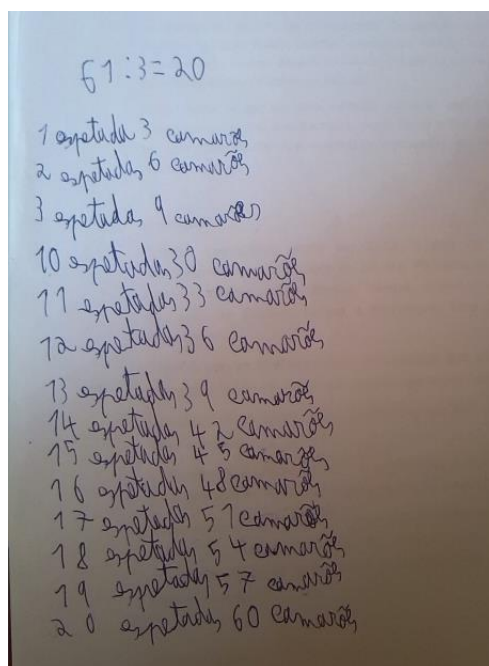 61:3=20
1 espetada 3 camarões
2 espetadas 6 camarões
3 espetadas 9 camarões
10 espetadas 30 camarões
11 espetadas 33 camarões
12 espetadas 36 camarões
13 espetadas 39 camarões
14 espetadas 42 camarões
15 espetadas 45 camarões
16 espetadas 48 camarões
17 espetadas 51 camarões
18 espetadas 54 camarões
19 espetadas 57 camarões
20 espetadas 60 camarões